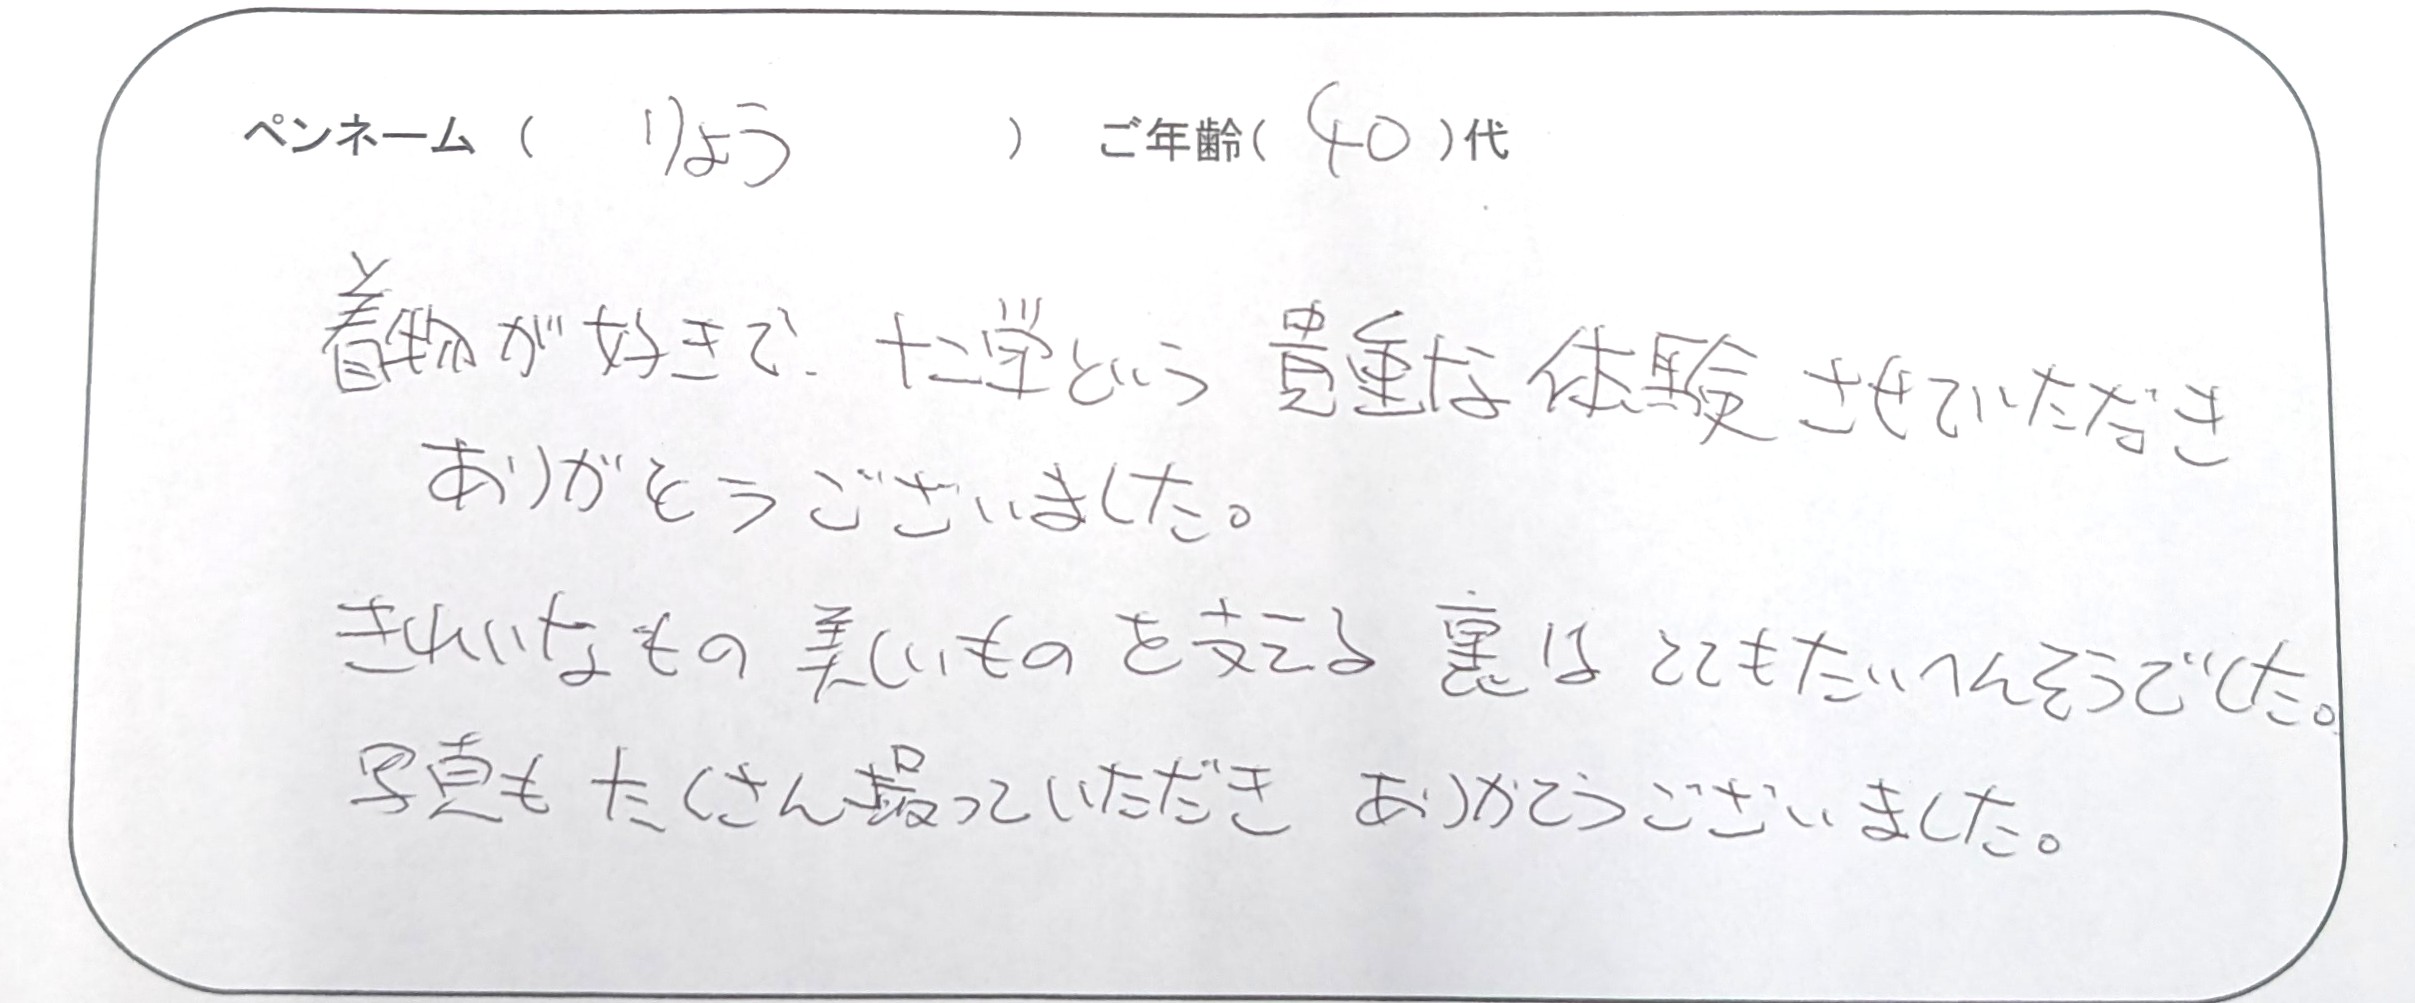 ペンネーム ( りょう ) ご年齢( 40 )代
着物が好きで、十二単という 貴重な 体験 させていただき
ありがとうございました。
きれいなもの 美しいもの を支える 裏は とてもたいへんそうでした。
写真も たくさん撮っていただき ありがとうございました。